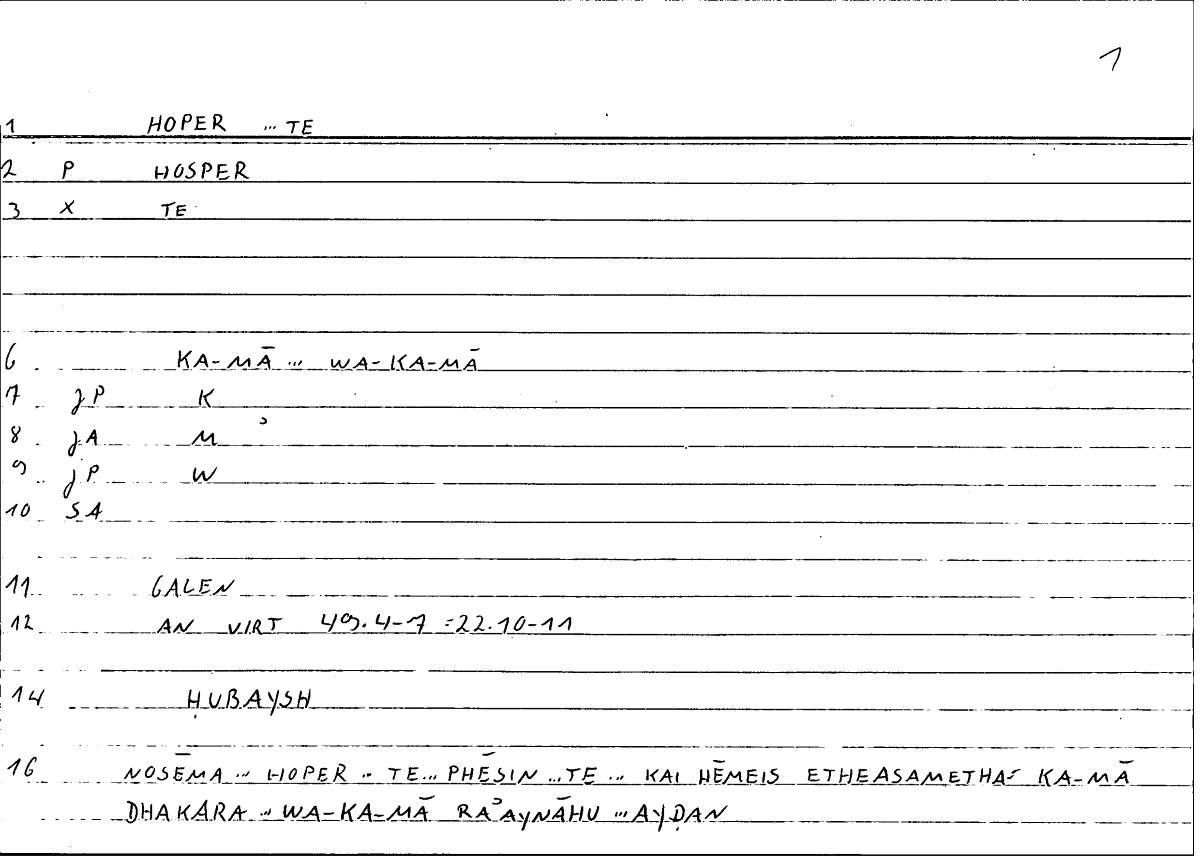 1
1 HOPER ... TE
2 P HOSPER
3 X TE
6 KA-MĀ ... WA-KA-MĀ
7 JP K
8 JA M ʾ
9 JP W
10 SA
11 GALEN
12 AN VIRT 49.4-7 =22.10-11
14 ḤUBAYSH
16 NOSĒMA ... HOPER ... TE... PHĒSIN ...TE ... KAI HĒMEIS ETHEASAMETHA= KA-MĀ
DHAKARA ... WA-KA-MĀ RAʾAYNĀHU ... AYḌAN